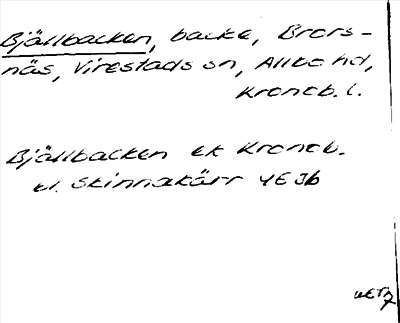 Bjällbacken, backe, Brors-
näs, Virestads sn, Allbo hd,
Kronob. l.
Bjällbacken ek Kronob.
vl. Skinnakärr 4E Jb